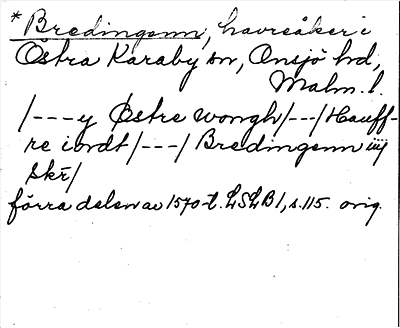 * Bredingenn, havreåker i
Östra Karaby sn, Onsjö hd,
Malm. l.
/---y Østre wongh/---/Hauff-
re iordt/---/Bredingenn iiij
skr̄/
förra delen av 1570-t. LSLB1, s. 115. orig.